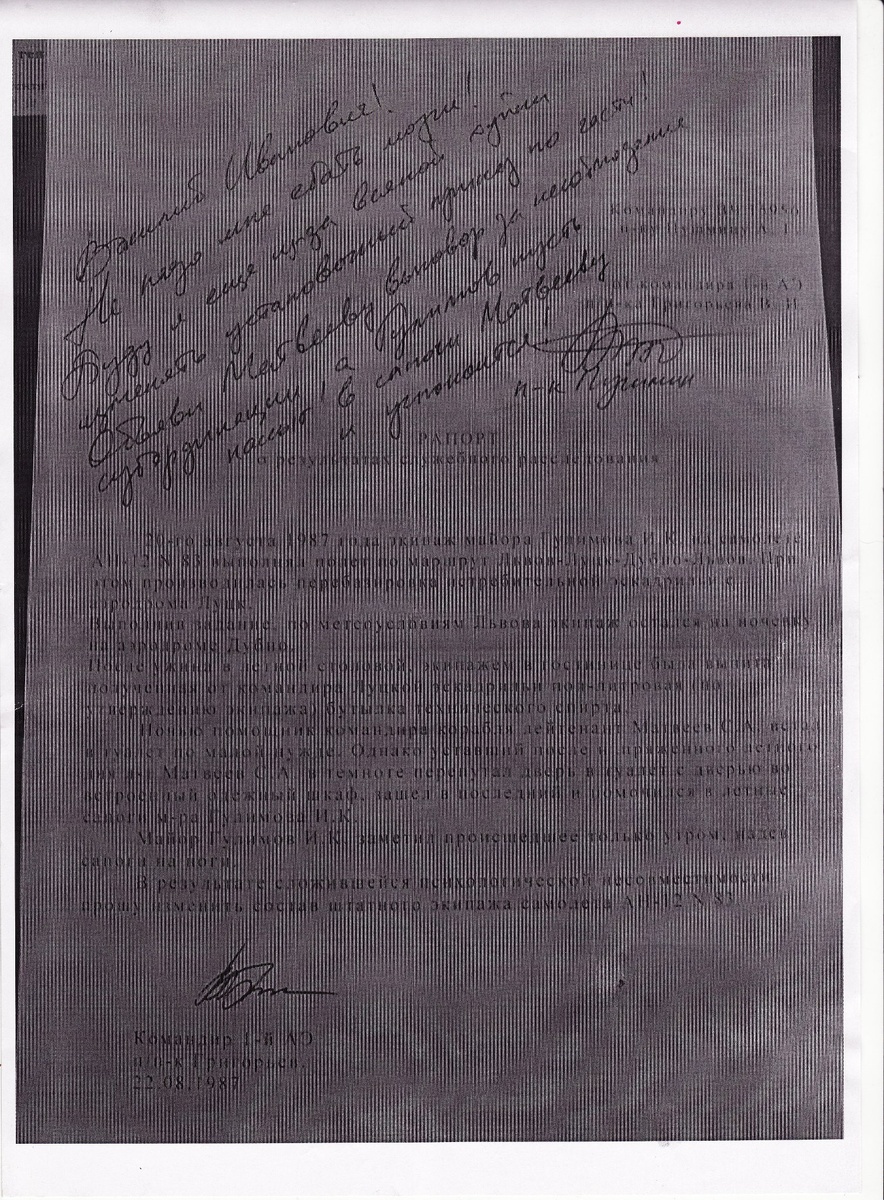 Василий Иванович!
Не надо мне ебать мозги!
Буду я еще из-за всякой хуйни
изменять установочный приказ по части!
Объяви Матвееву выговор за несоблюдение
субординации, а Гулимов пусть
нассыт в сапоги Матвееву
и успокоится!
п-к Пушмин
Командиру ВЧ
п-ку Пушмину А. Г.
от командира 1-й АЭ
п/п-ка Григорьева В. И.
РАПОРТ
о результатах служебного расследования
20-го августа 1987 года экипаж майора Гулимова И.К. на самолете
АН-12 N 83 выполнял полет по маршрут Львов-Луцк-Дубно-Львов. При
этом производилась перебазировка истребительной эскадрильи с
аэродрома Луцк.
Выполнив задание, по метеоусловиям Львова экипаж остался на ночевку
на аэродроме Дубно.
После ужина в летной столовой, экипажем в гостинице была выпита
полученная от командира Луцкой эскадрильи пол-литровая (по
утверждению экипажа) бутылка технического спирта.
Ночью помощник командира корабля лейтенант Матвеев С.А. встал
в туалет по малой нужде. Однако уставший после напряженного летного
дня л-т Матвеев С.А. в темноте перепутал дверь в туалет с дверью во
встроенный одежный шкаф, зашел в последний и помочился в летние
сапоги м-ра Гулимова И.К.
Майор Гулимов И.К. заметил происшедшее только утром, надев
сапоги на ноги.
В результате сложившейся психологической несовместимости
прошу изменить состав штатного экипажа самолета АН-12 N 83
Командир 1-й АЭ
п/п-к Григорьев.
22.08.1987